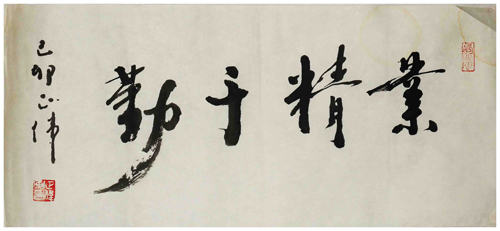 業精于勤
己卯正偉